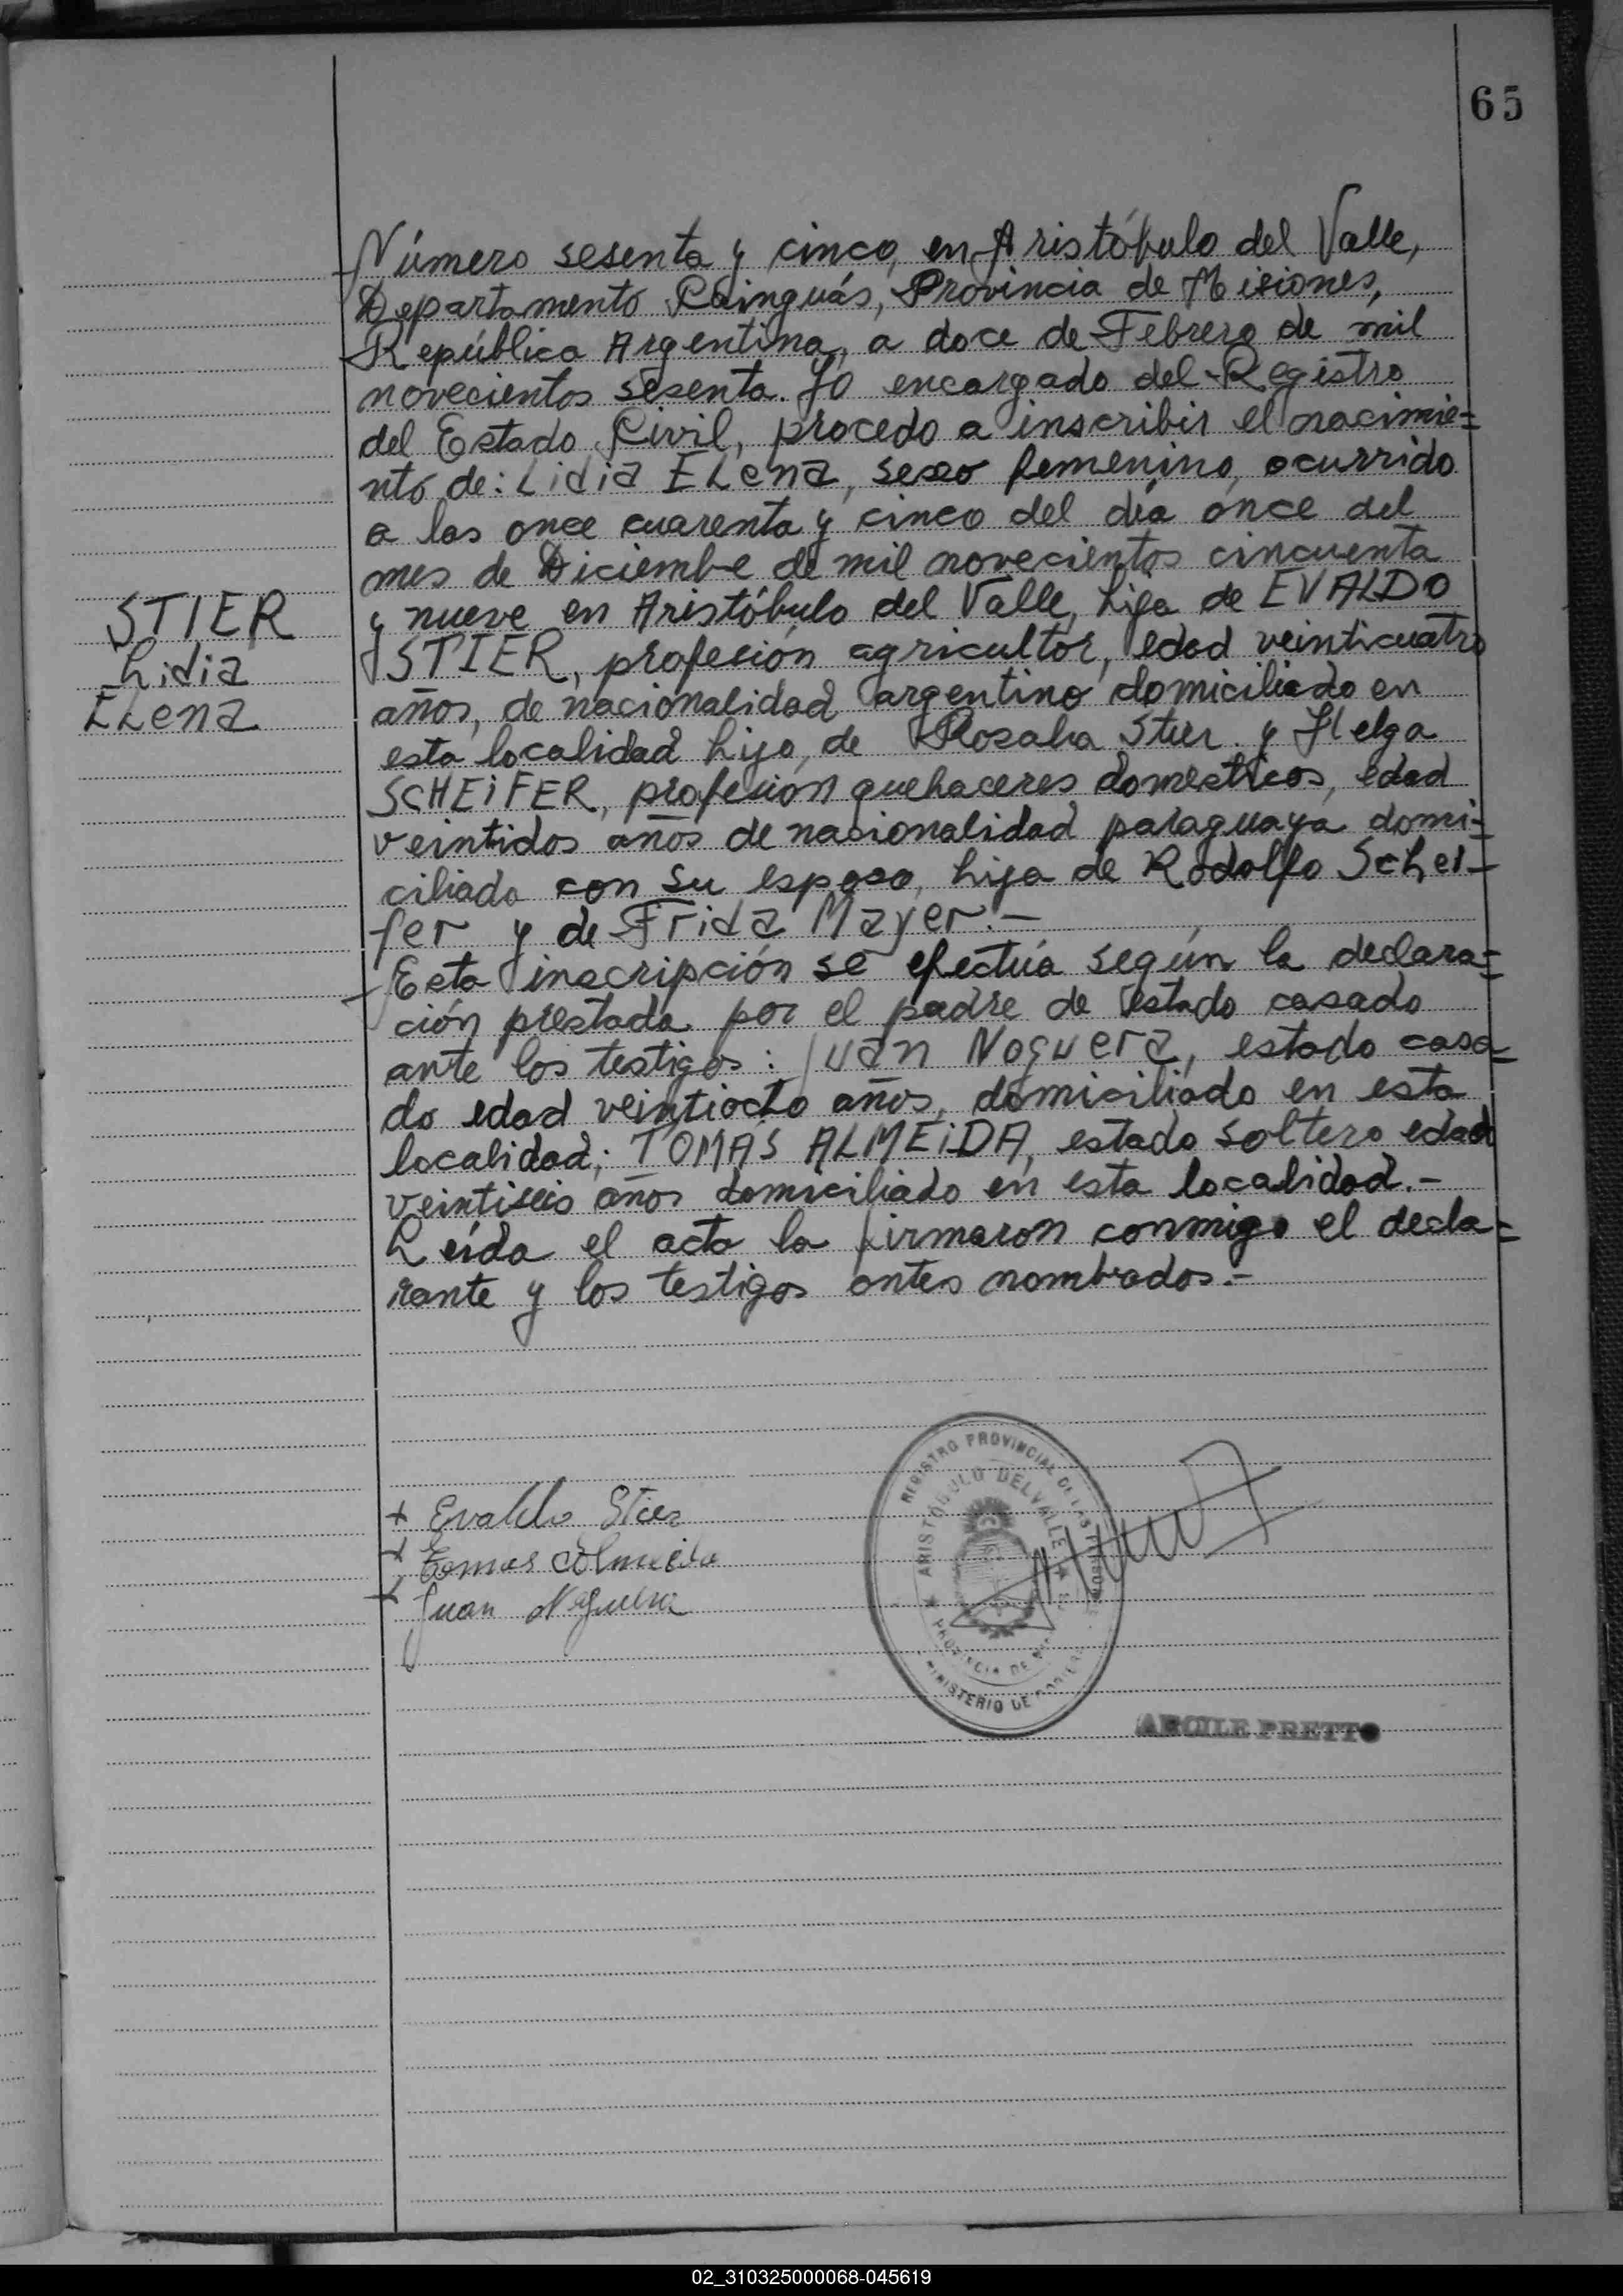 65
Número sesenta y cinco, en Aristóbulo del Valle,
Departamento Cainguás, Provincia de Misiones,
República Argentina, a doce de Febrero de mil
novecientos sesenta. Yo encargado del Registro
del Estado Civil, procedo a inscribir el nacimie=
nto de: Lidia ELena, sexo femenino, ocurrido
a las once cuarenta y cinco del día once del
mes de Diciembre de mil novecientos cincuenta
y nueve en Aristóbulo del Valle, hija de EVALDO
STIER, profesión agricultor, edad veinticuatro
años, de nacionalidad argentino domiciliado en
esta localidad hijo, de Rosalia Stier y Helga
SCHEiFER, profesión quehaceres domésticos, edad
veintidos años de nacionalidad paraguaya domi=
ciliada con su esposo, hija de Rodolfo Schei-
fer y de Frida Mayer.-
Esta inscripción se efectúa según la declara=
ción prestada por el padre de estado casado
ante los testigos: Juan Noguera, estado casa-
do edad veintiocho años, domiciliado en esta
localidad; TOMAS ALMEiDA, estado soltero edad
veintiseis años domiciliado en esta localidad.-
Leída el acta la firmaron conmigo el decla=
rante y los testigos antes nombrados.-
STIER
Lidia
ELena
+ Evaldo Stier
Tomas Almeida
Juan Noguera
REGISTRO PROVINCIAL DE LAS PERSONAS
ARISTÓBULO DEL VALLE
PROVINCIA DE
MINISTERIO DE GOBIERNO
PRETTO
02_310325000068-045619